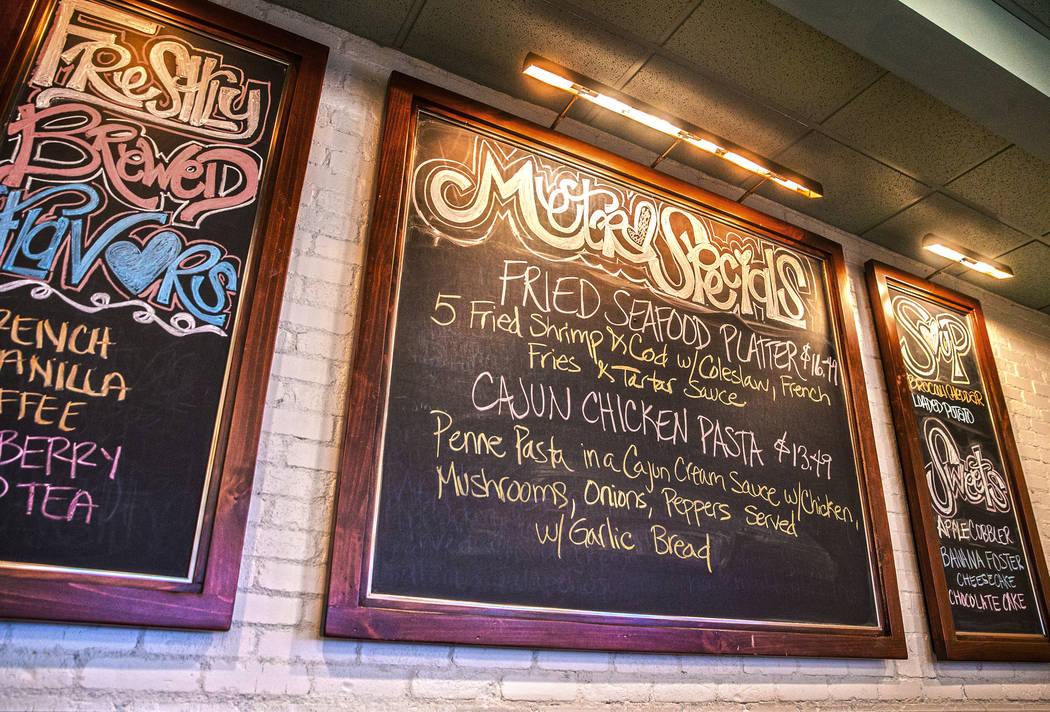 Freshly
Brewed
Flavors
FRENCH
VANILLA
COFFEE
BERRY
TEA
Mustard Specials
FRIED SEAFOOD PLATTER $16.49
5 Fried Shrimp & Cod w/ Coleslaw, French
Fries & Tartar Sauce
CAJUN CHICKEN PASTA $13.49
Penne Pasta in a Cajun Cream Sauce w/ Chicken,
Mushrooms, Onions, Peppers Served
w/ Garlic Bread
Soup
BROCCOLI CHEDDER
LOADED POTATO
Sweets
APPLE COBBLER
BANANA FOSTER
CHEESECAKE
CHOCOLATE CAKE